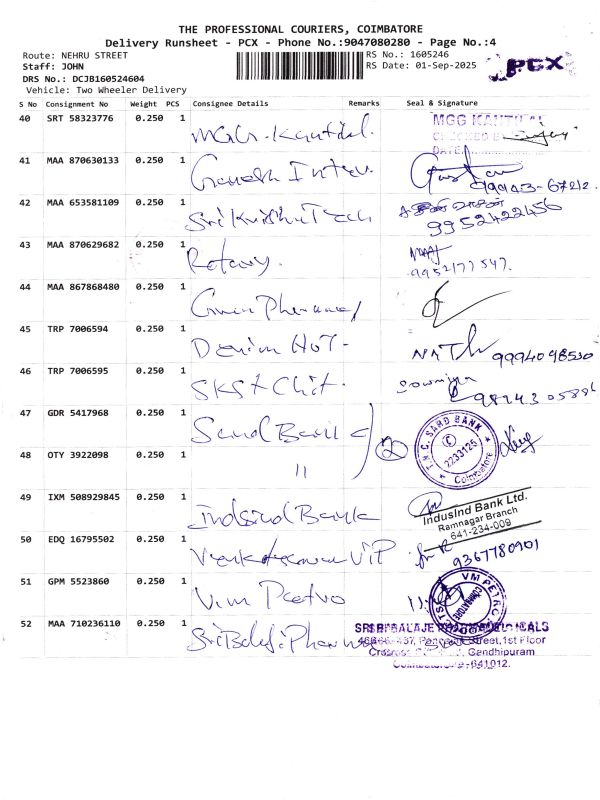 THE PROFESSIONAL COURIERS, COIMBATORE
Delivery Runsheet - PCX - Phone No.:9047080280 - Page No.:4
Route: NEHRU STREET
RS No.: 1605246
Staff: JOHN
RS Date: 01-Sep-2025
PCX
DRS No.: DCJB160524604
Vehicle: Two Wheeler Delivery
S No Consignment No Weight PCS Consignee Details Remarks Seal & Signature
40 SRT 58323776 0.250 1
MGG KANTILAL
CHECKED B
DATE
41 MAA 870630133 0.250 1 Ganesh
42 MAA 653581109 0.250 1 Sri Krishna Tech 9952422456
43 MAA 870629682 0.250 1 Rotary. 9952177547.
44 MAA 867868480 0.250 1
45 TRP 7006594 0.250 1 Denim HOT. NATH 9994098530
46 TRP 7006595 0.250 1 SKST Chit. sowmiya
47 GDR 5417968 0.250 1 Sarad Bank 2
T.N.C. SARD BANK
2233125
Coimbatore
48 OTY 3922098 0.250 1 "
49 IXM 508929845 0.250 1 Indsind Bank
IndusInd Bank Ltd.
Ramnagar Branch
641-234-009
50 EDQ 16795502 0.250 1 VIP 9367780901
51 GPM 5523860 0.250 1 Vim Petro
VM PETRO
COIMBATORE
52 MAA 710236110 0.250 1 Sri Balaji Pharma
SRI BALAJE
Street,1st Floor
Gandhipuram
Coimbatore-641012.